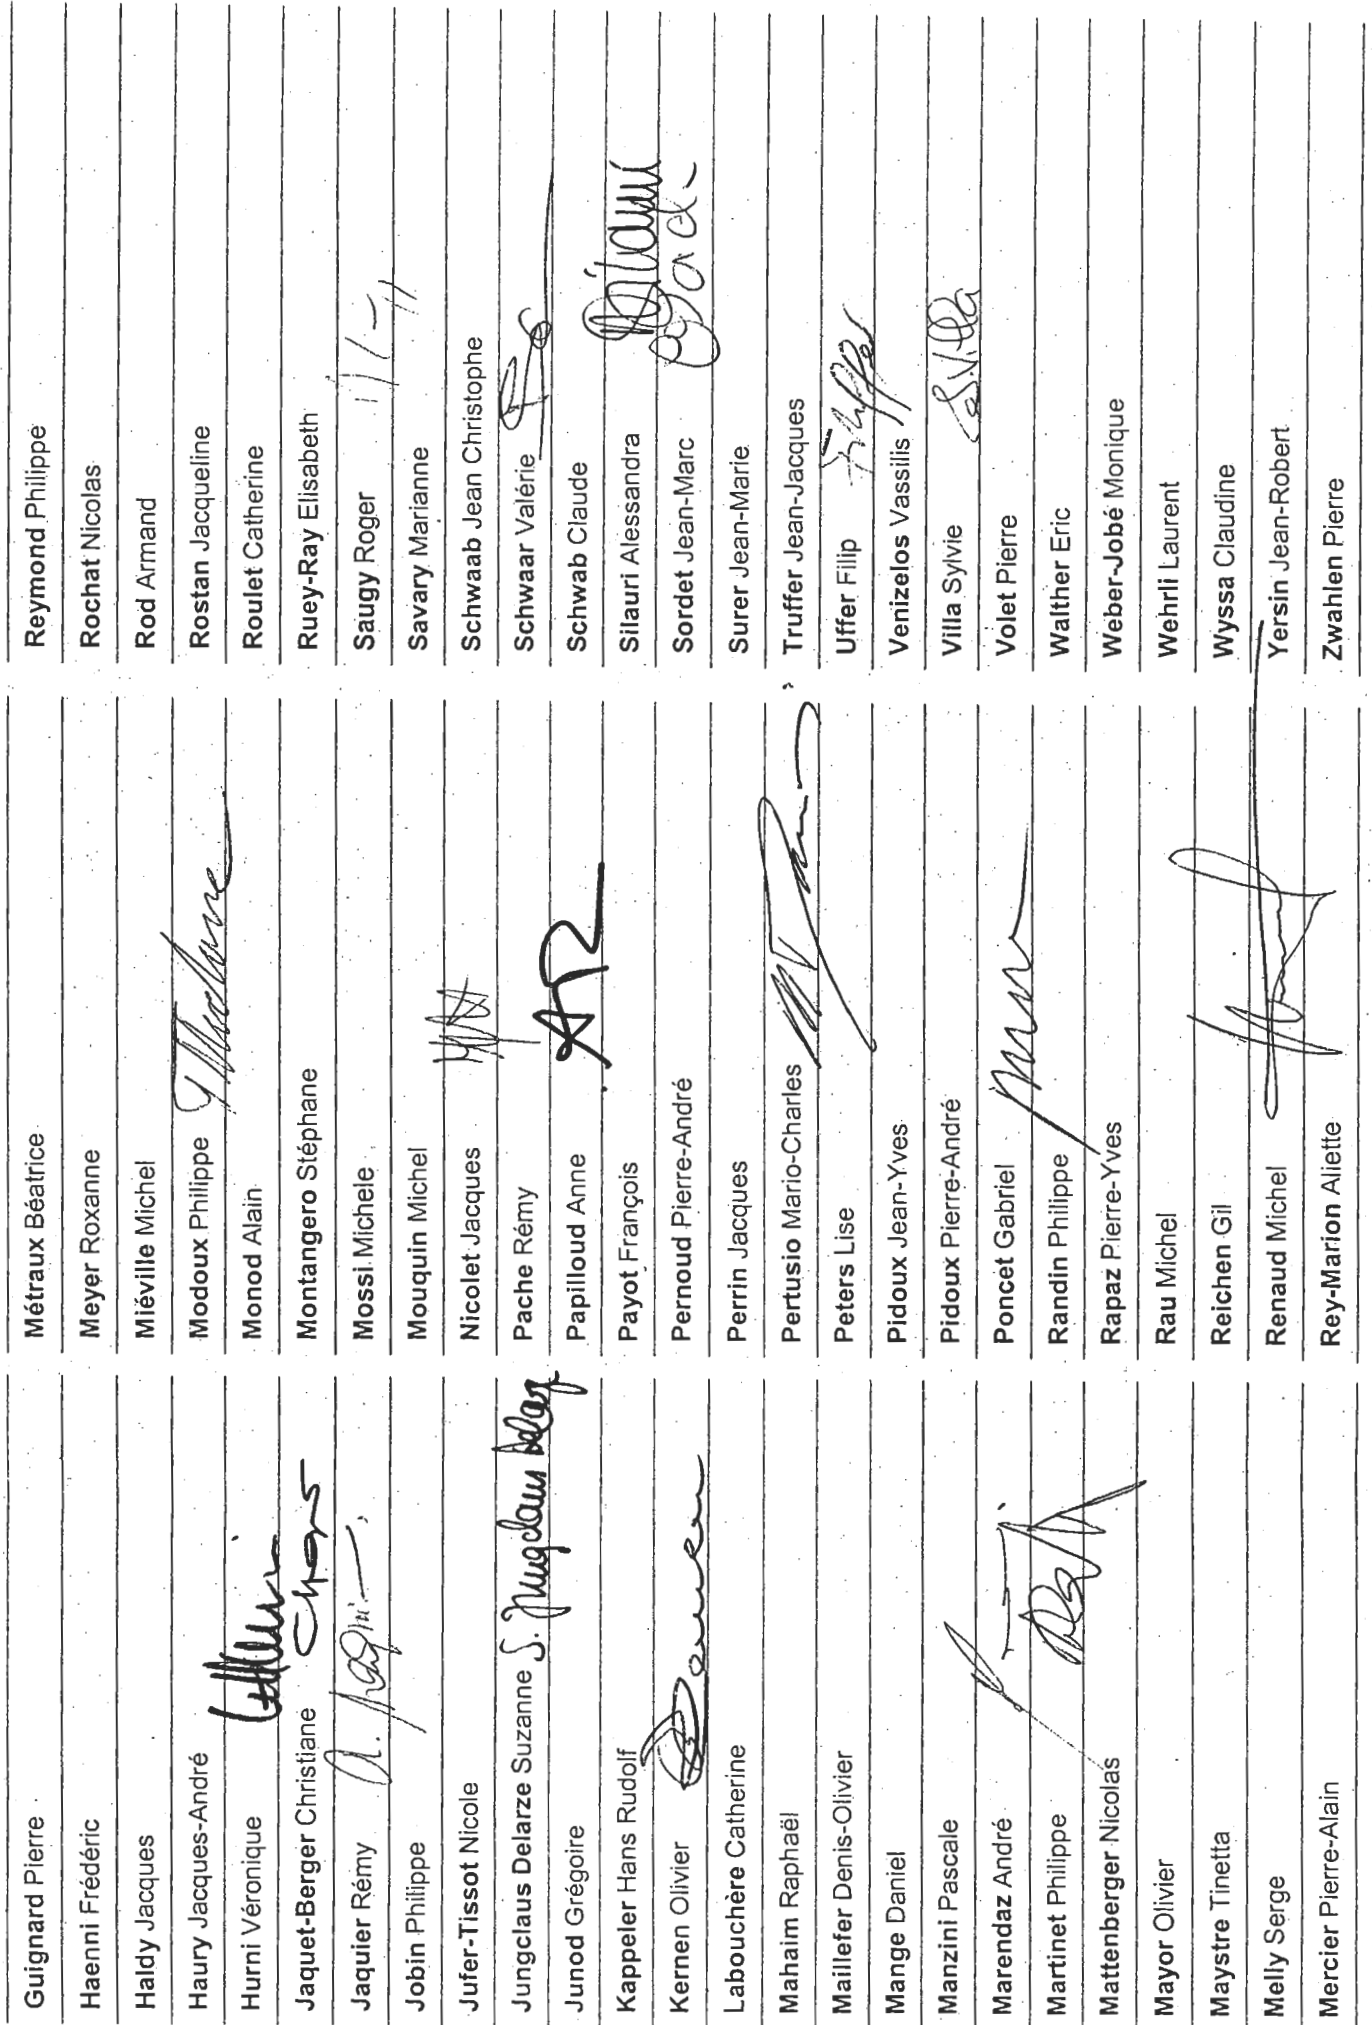 Guignard Pierre
Haenni Frédéric
Haldy Jacques
Haury Jacques-André
Hurni Véronique
Jaquet-Berger Christiane
Jaquier Rémy
Jobin Philippe
Jufer-Tissot Nicole
Jungclaus Delarze Suzanne S. Jungclaus Delarze
Junod Grégoire
Kappeler Hans Rudolf
Kernen Olivier
Labouchère Catherine
Mahaim Raphaël
Maillefer Denis-Olivier
Mange Daniel
Manzini Pascale
Marendaz André
Martinet Philippe
Mattenberger Nicolas
Mayor Olivier
Maystre Tinetta
Melly Serge
Mercier Pierre-Alain
Métraux Béatrice
Meyer Roxanne
Miéville Michel
Modoux Philippe
Monod Alain
Montangero Stéphane
Mossi Michele
Mouquin Michel
Nicolet Jacques
Pache Rémy
Papilloud Anne
Payot François
Pernoud Pierre-André
Perrin Jacques
Pertusio Mario-Charles
Peters Lise
Pidoux Jean-Yves
Pidoux Pierre-André
Poncet Gabriel
Randin Philippe
Rapaz Pierre-Yves
Rau Michel
Reichen Gil
Renaud Michel
Rey-Marion Aliette
Reymond Philippe
Rochat Nicolas
Rod Armand
Rostan Jacqueline
Roulet Catherine
Ruey-Ray Elisabeth
Saugy Roger
Savary Marianne
Schwaab Jean Christophe
Schwaar Valérie
Schwab Claude
Silauri Alessandra
Sordet Jean-Marc
Surer Jean-Marie
Truffer Jean-Jacques
Uffer Filip
Venizelos Vassilis
Villa Sylvie S. Villa
Volet Pierre
Walther Eric
Weber-Jobé Monique
Wehrli Laurent
Wyssa Claudine
Yersin Jean-Robert
Zwahlen Pierre